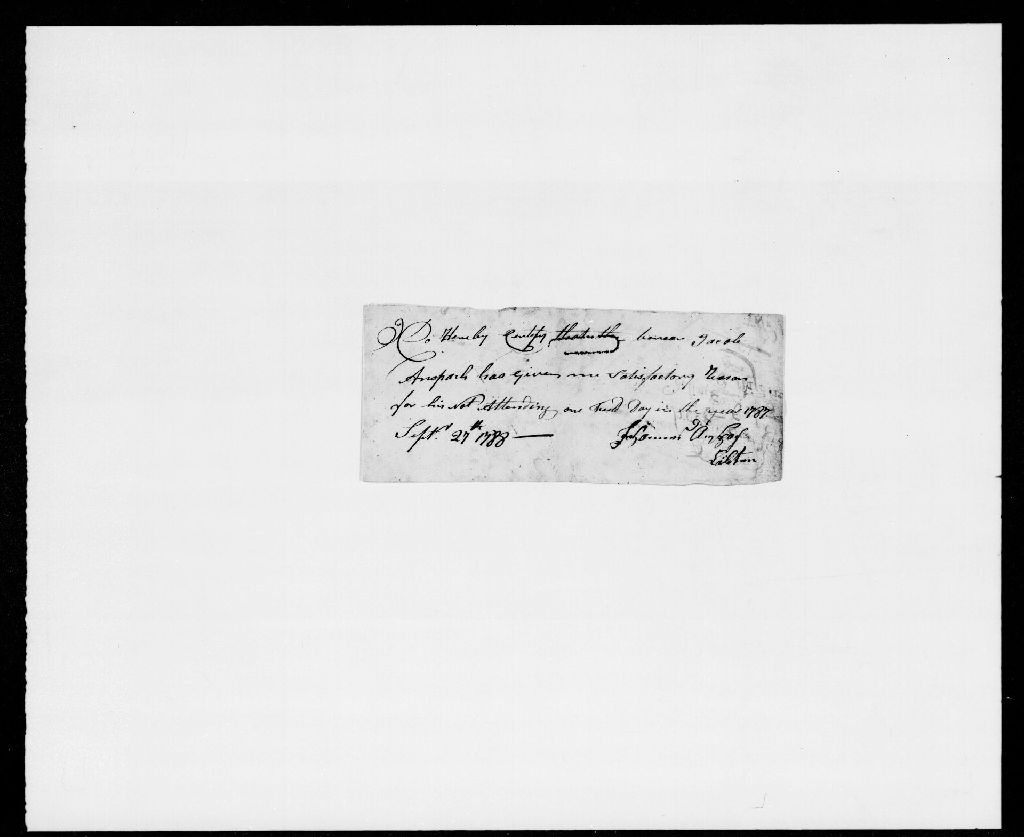 I Do Hereby Certify that the bearer Jacob
Anspach has given me Satisfactory Reason
for his Not Attending one Field Day in the year 1787
Septr. 27th 1788